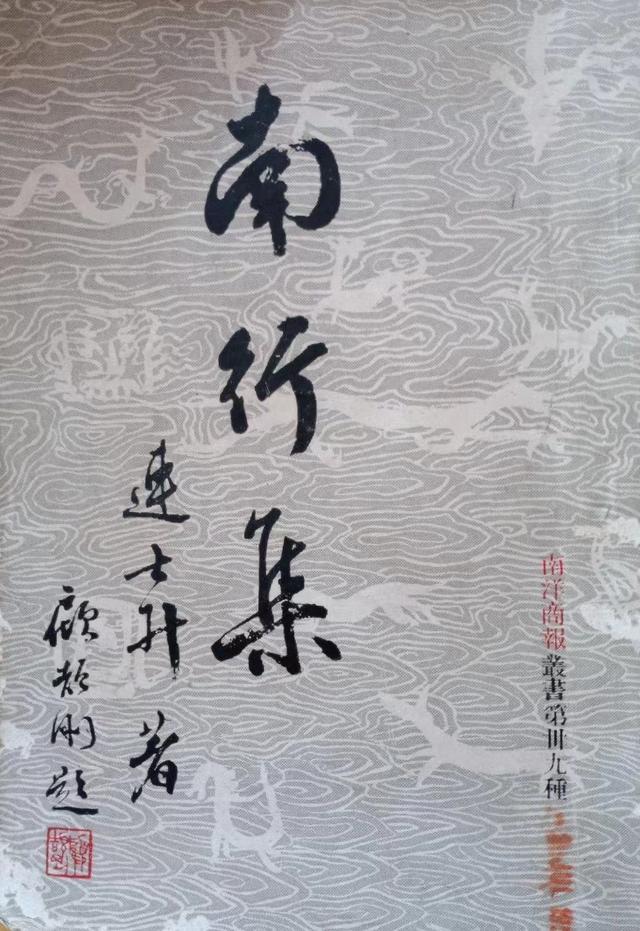 南洋商報叢書第卌九種
南行集
連士升著
顧頡剛題